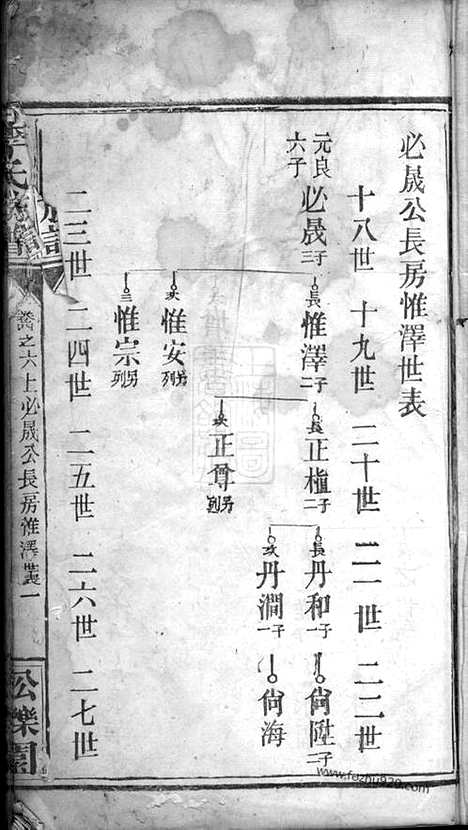 必晟公長房惟澤世表
十八世 十九世 二十世 二一世 二二世
元良六子 必晟 三子
長 惟澤 二子
次 惟安 另列
三 惟宗 另列
長 正植 二子
次 正尊 另列
長 丹和 一子
次 丹澗 一子
尙陞 二子
尙海
二三世 二四世 二五世 二六世 二七世
李氏族譜
卷之六上必晟公長房惟澤世表一
www.fazhu920.com